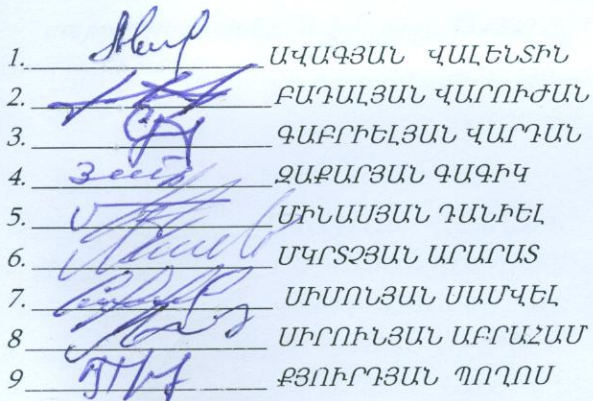 1. ԱՎԱԳՅԱՆ ՎԱԼԵՆՏԻՆ
2. ԲԱԴԱԼՅԱՆ ՎԱՐՈՒԺԱՆ
3. ԳԱԲՐԻԵԼՅԱՆ ՎԱՐԴԱՆ
4. ԶԱՔԱՐՅԱՆ ԳԱԳԻԿ
5. ՄԻՆԱՍՅԱՆ ԴԱՆԻԵԼ
6. ՄԿՐՏՉՅԱՆ ԱՐԱՐԱՏ
7. ՍԻՄՈՆՅԱՆ ՍԱՄՎԵԼ
8 ՍԻՐՈՒՆՅԱՆ ԱԲՐԱՀԱՄ
9 ՔՅՈՒՐԴՅԱՆ ՊՈՂՈՍ